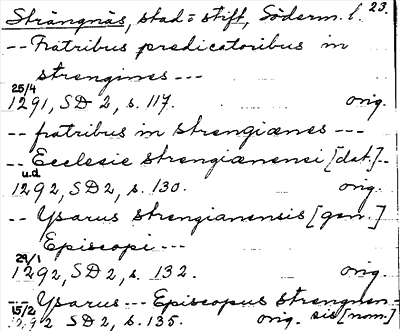 Strängnäs, stad o stift, Söderm. l. 23.
-- Fratribus predicatoribus in
strengines ---
25/4
1291, SD 2, s. 117. orig.
-- fratribus in strengiænes ---
-- Ecclesie strengianensi [dat.]--
u.d.
1292, SD 2, s. 130. orig.
-- Ysarus strengianensis [gen.]
Episcopi ---
29/1
1292, SD 2, s. 132. orig.
-- Ysarus --- Episcopus strengnen-
15/2 sis [nom.]
1292 SD 2, s. 135. orig.